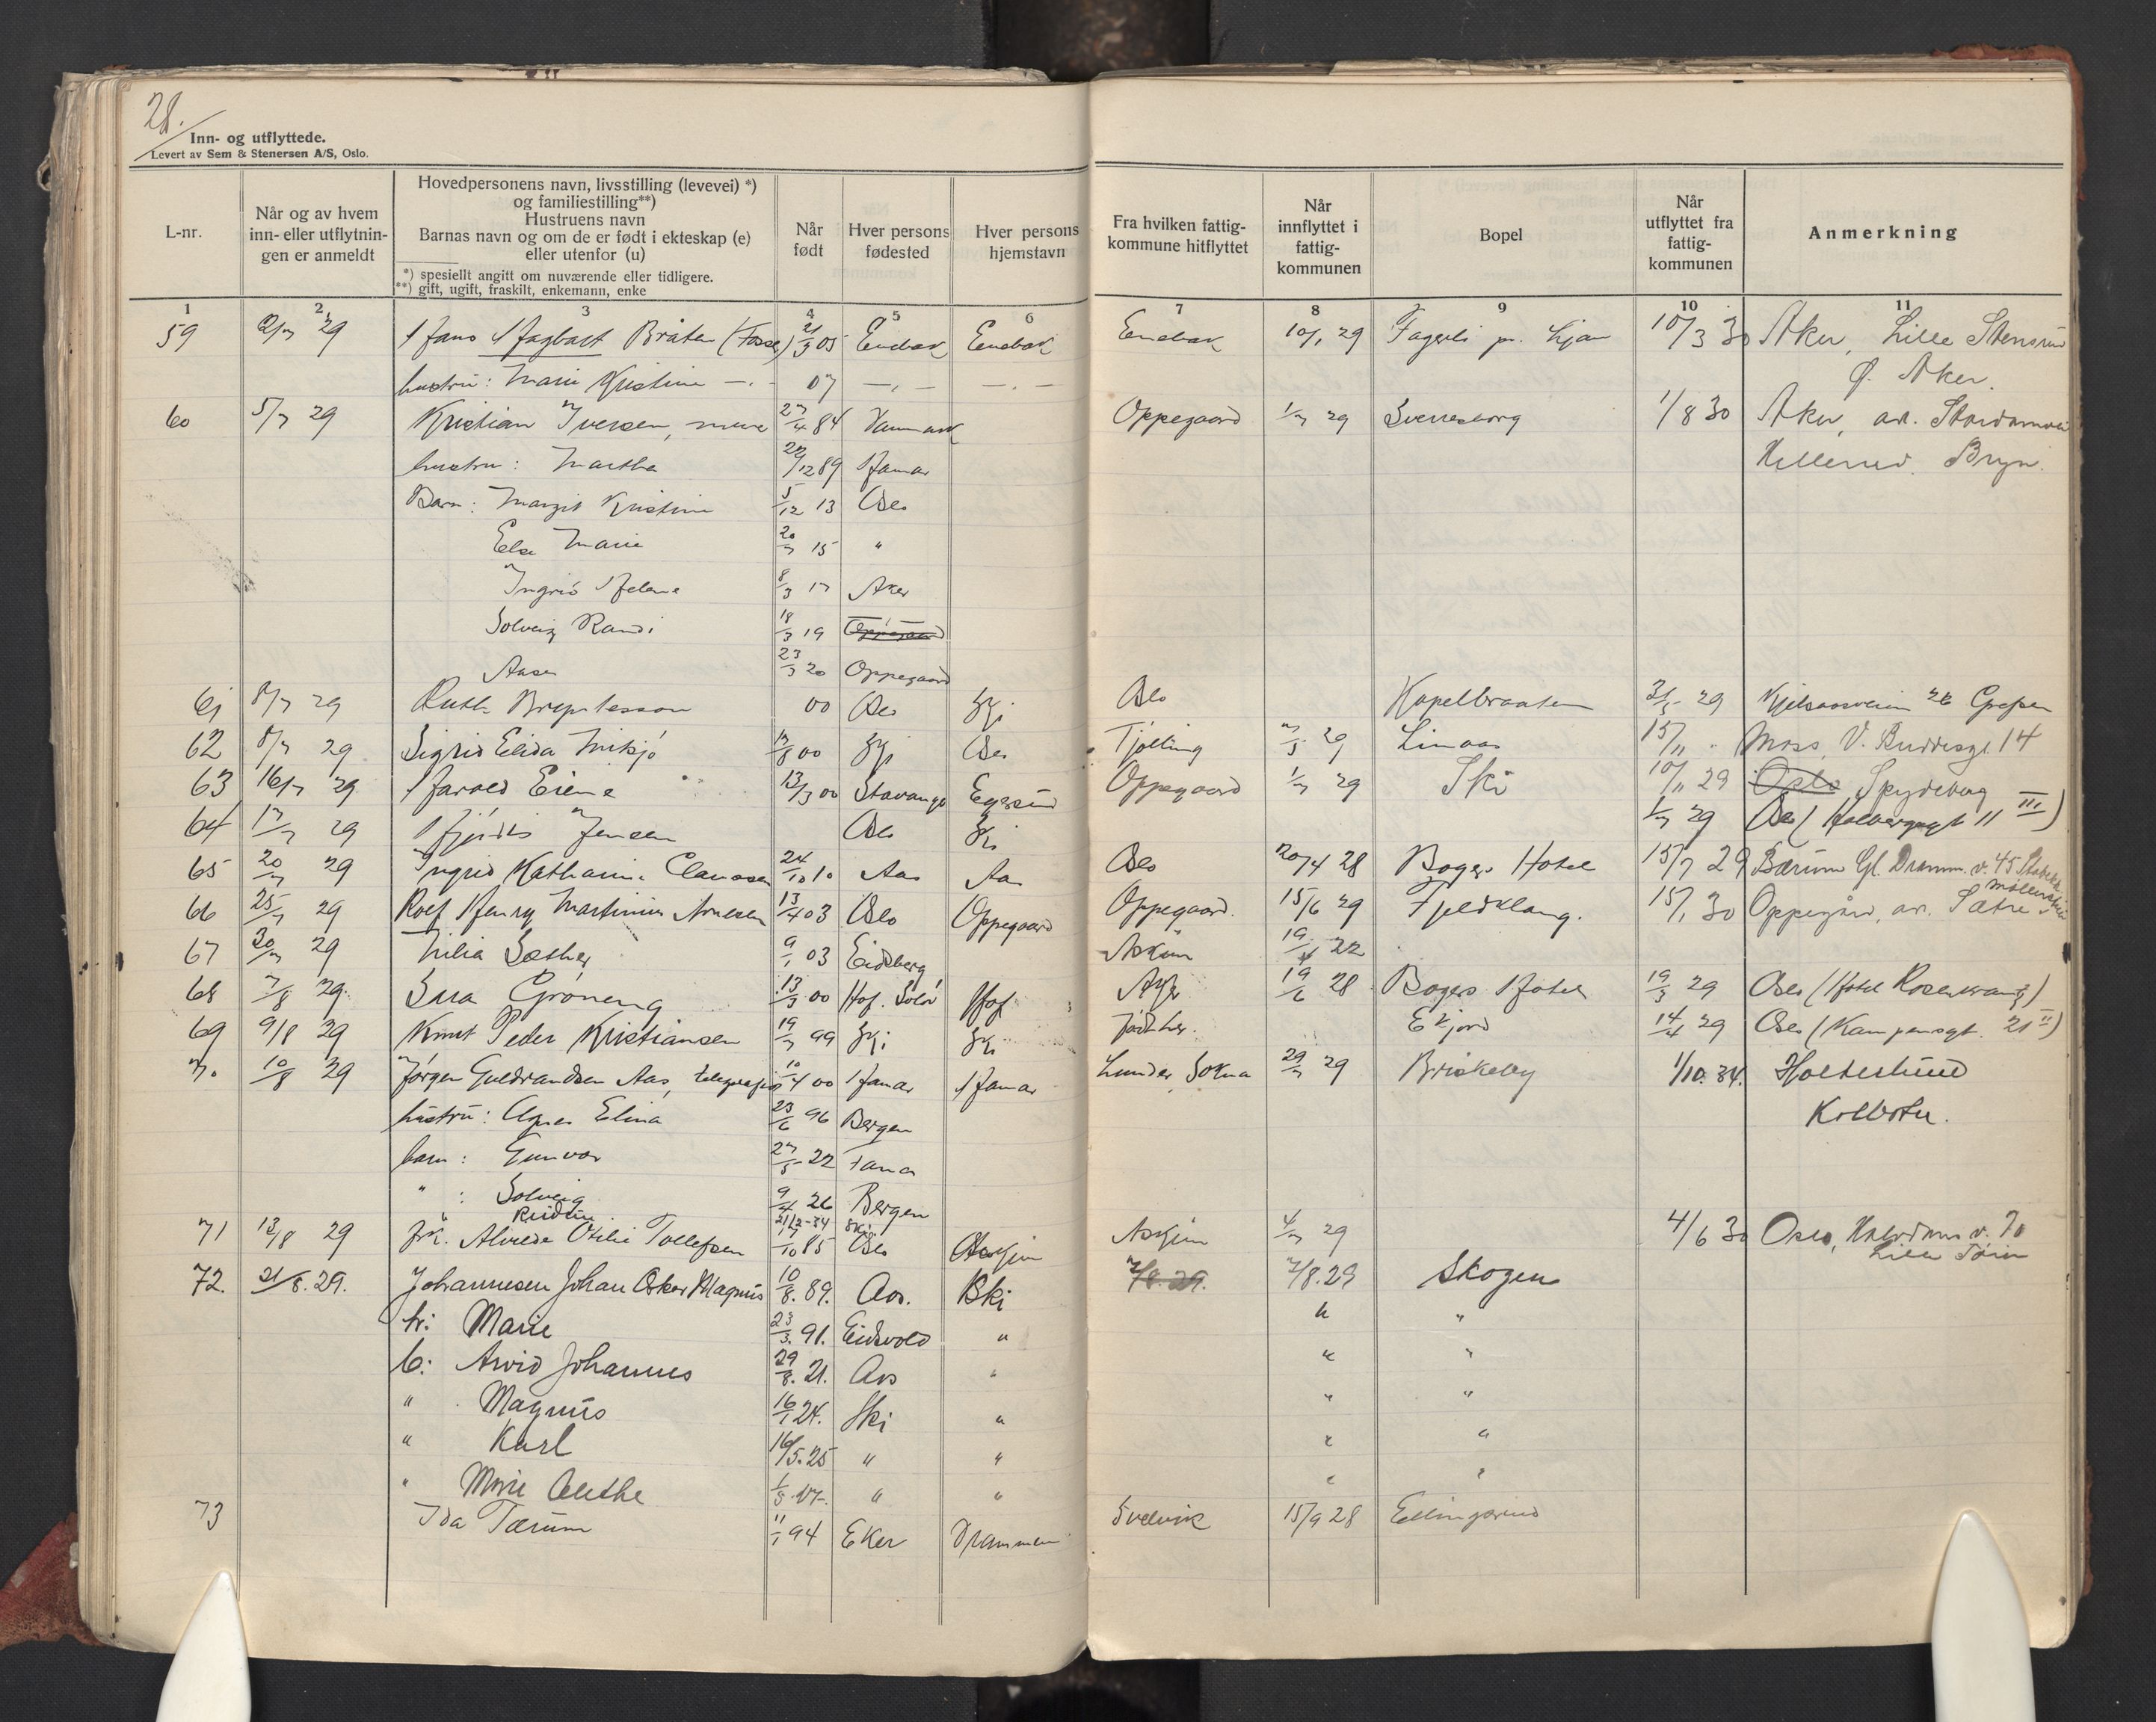 28.
Inn- og utflyttede.
Levert av Sem & Stenersen A/S, Oslo.
L-nr.
Når og av hvem
inn- eller utflytnin-
gen er anmeldt
Hovedpersonens navn, livsstilling (levevei) *)
og familiestilling**)
Hustruens navn
Barnas navn og om de er født i ekteskap (e)
eller utenfor (u)
*) spesiellt angitt om nuværende eller tidligere.
**) gift, ugift, fraskilt, enkemann, enke
Når
født
Hver persons
fødested
Hver persons
hjemstavn
Fra hvilken fattig-
kommune hitflyttet
Når
innflyttet i
fattig-
kommunen
Bopel
Når
utflyttet fra
fattig-
kommunen
Anmerkning
1 2 3 4 5 6 7 8 9 10 11
59 2/7 29 Hans Hagbart Bråten 05 Enebak Enebak Enebak 29 Fagerli pr. Ljan 10/3 30 Aker, Lille Stensrud
hustru: Marie Kristine —.— 07 —.— —.— Ø. Aker.
60 5/7 29 Kristian Iversen, 27/4 84 Danmark Oppegaard 1/7 29 Sverresborg 1/8 30 Aker,
hustru: Martha 89 Hamar Bryn.
Barn: Margit Kristine 5/12 13 Oslo
Else Marie 20/7 15 "
Ingrid Helene 8/3 17 Aker
Solveig Randi 18/3 19 Oppegaard
Aase 23/3 20 Oppegaard
61 8/7 29 Ruth 00 Oslo Ski Oslo Kapelbraaten 29 Kjelsaasveien Grefsen
62 8/7 29 Sigrid Elida 00 Ski Oslo Tjølling 29 Limaas 15/11 Moss, 14
63 16/7 29 Harald Eiene 13/3 00 Stavanger Egersund Oppegaard 1/7 29 Ski 10/11 29 Oslo Spydeberg
64 17/7 29 Hjørdis Jensen Oslo Ski 1/7 29 Oslo (Holbergsgt 11 III)
65 20/7 29 Ingrid Katharina Claussen 24/10 10 Aas Aas Oslo 20/4 28 Bogers Hotel 15/7 29 Bærum Gl. Dramm. v. 45 Stabekk
66 25/7 29 Rolf Henry Martinius Arnesen 13/4 03 Oslo Oppegaard Oppegaard. 15/6 29 Fjeldklang. 15/1 30 Oppegård, Sætre
67 30/7 29 Lilia Sæther 9/1 03 Eidsberg Askim 22
68 7/8 29 Sara Grøneng 13/3 00 Hof. Solør Hof 19/6 28 Bogers Hotel 19/3 29 Oslo (Hotel Rosenkrantz)
69 9/8 29 Knut Peder Kristiansen 19/7 99 Ski Ski Født her. Ekjord 14/4 29 Oslo (Kampensgt. 21 II)
70 10/8 29 Jørgen Guldbrandsen Aas, telegrafist 10/4 00 Hamar Hamar Lunder Sokna 29/7 29 Briskeby 1/10.34. Holteslund
hustru: Agnes Elina 23/6 96 Bergen Kolbotn.
barn: Gunvor 27/5 22 Fana
" : Solveig 9/4 26 Bergen
" 21/2-34 Ski
71 13/8 29 frk. Alvilde Otilie Tollefsen 17/10 85 Oslo Askim Askim 4/7 29 4/6 30 Oslo,
72. 21/8.29. Johannesen Johan Oskar Magnus 10/8. 89. Aas. Ski 7/8.29. 7/8.29 Skogen
h: Marie 23/3. 91. Eidsvold " " "
b: Arvid Johannes 29/8. 21. Aas " " "
" Magnus 16/1 24. Ski " " "
" Karl 16/5.25 " " " "
" Marie " " " "
73 Ida Tærum 11/1 94 Eker Drammen Svelvik 15/9 28 Ellingsrud